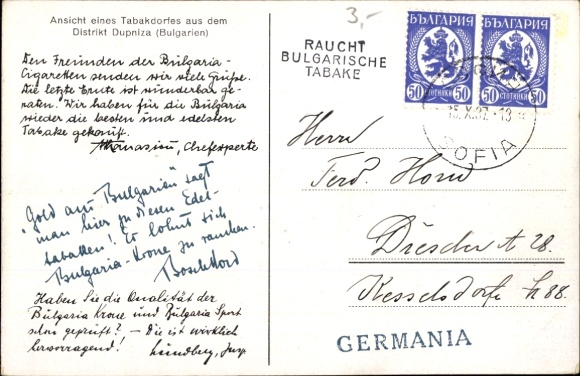 Ansicht eines Tabakdorfes aus dem
Distrikt Dupniza (Bulgarien)
Den Freunden der Bulgaria-
Cigaretten senden wir viele Grüße.
Die letzte Ernte ist wunderbar ge-
raten. Wir haben für die Bulgaria
wieder die besten und edelsten
Tabake gekauft.
Athanasiou, Chefexperte
"Gold aus Bulgarien" sagt
man hier zu diesen Edel-
tabaken! Es lohnt sich
Bulgaria-Krone zu rauchen.
Haben Sie die Qualität der
Bulgaria Krone und Bulgaria Sport
schon geprüft? - Die ist wirklich
hervorragend! Lundberg, Insp.
3,-
RAUCHT
BULGARISCHE
TABAKE
БЪЛГАРИЯ БЪЛГАРИЯ
50 СТОТИНКИ 50 50 СТОТИНКИ 50
15.X.37.-13
SOFIA
Herrn
Ferd. Horn
Dresden A 28.
Kesselsdorfer 88.
GERMANIA